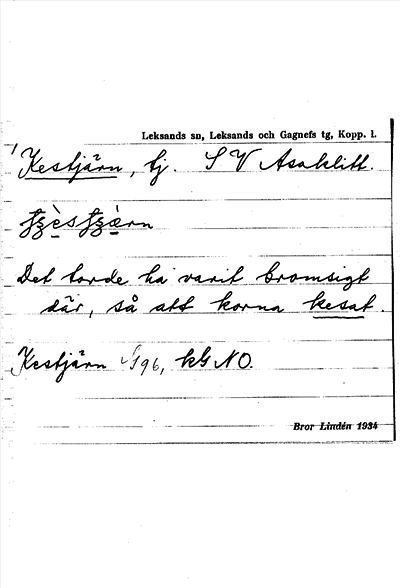 Leksands sn, Leksands och Gagnefs tg, Kopp. l.
1
Kestjärn, tj. S V Asaklitt.
Det torde ha varit bromsigt
där, så att korna kesat.
Kestjärn 96, kB NO.
Bror Lindén 1934